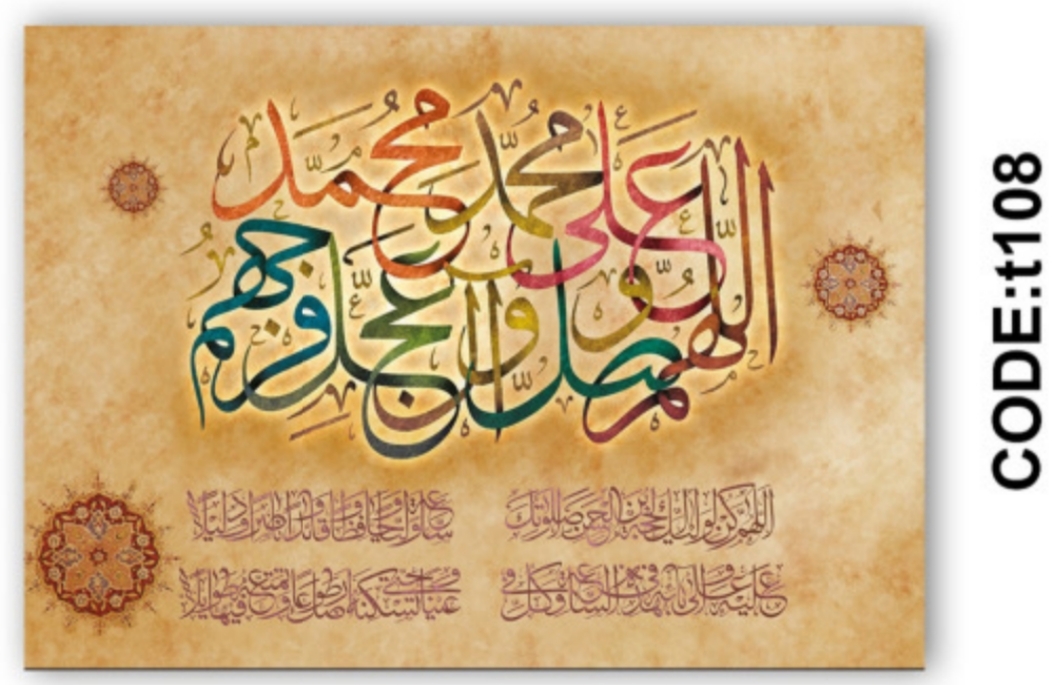 اللهم صل على محمد وآل محمد وعجل فرجهم
اللهم كن لوليك الحجة بن الحسن صلواتك
عليه وعلى آبائه في هذه الساعة وفي كل
ساعة وليا وحافظا وقائدا وناصرا ودليلا
وعينا حتى تسكنه أرضك طوعا وتمتعه فيها طويلا
CODE:t108